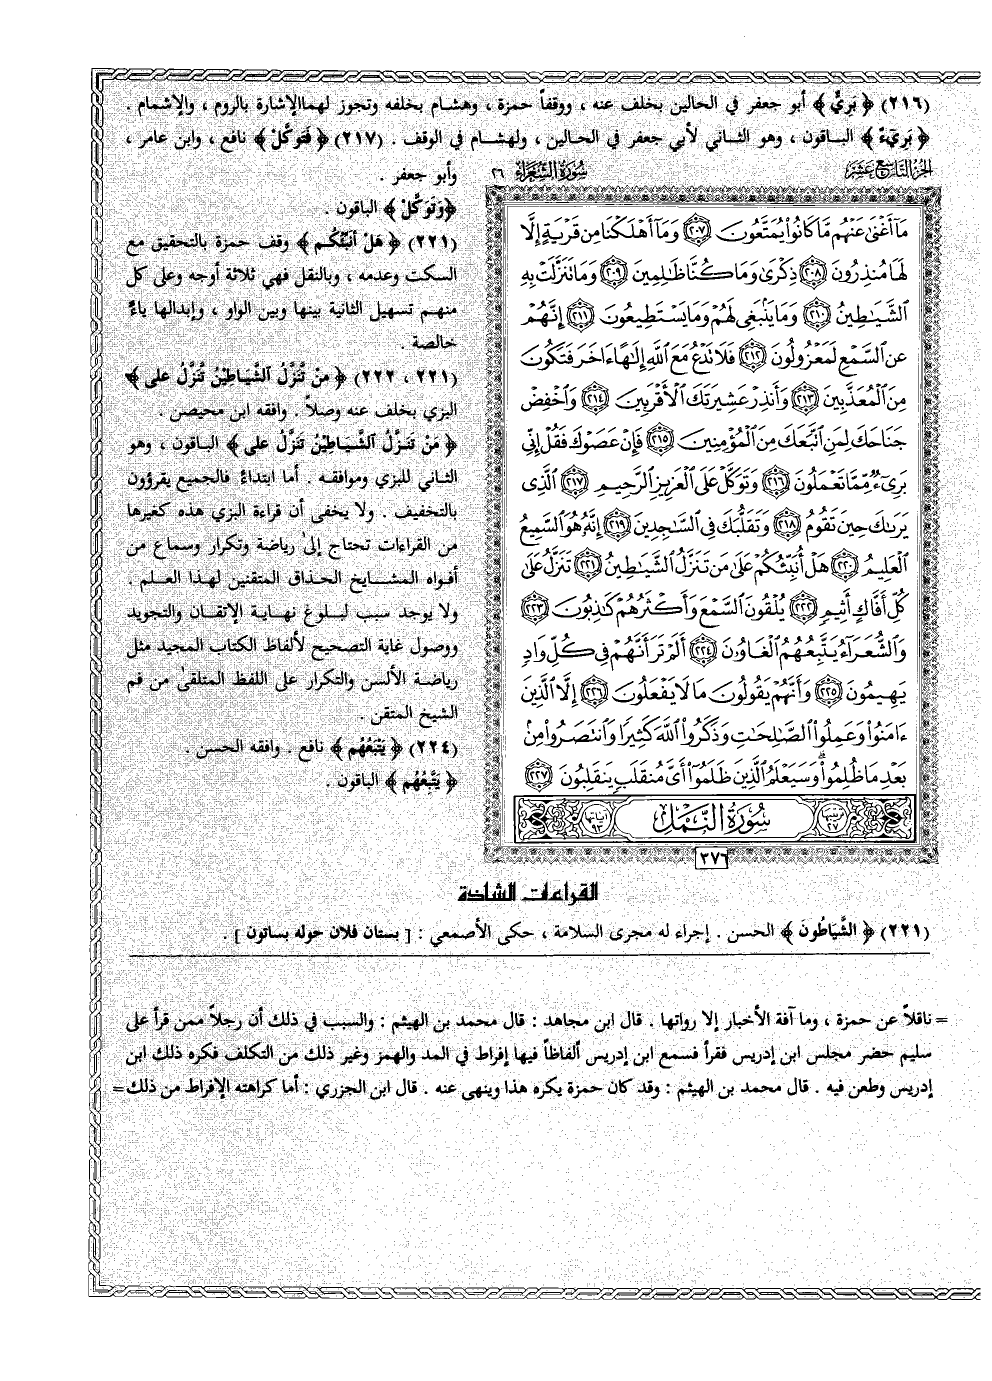 (٢١٦) ﴿ بَرِيٌّ ﴾ أبو جعفر في الحالين بخلف عنه ، ووقفاً حمزة ، وهشام بخلفه وتجوز لهما الإشارة بالروم ، والإشمام .
﴿ بَرِيءٌ ﴾ الباقون ، وهو الثاني لأبي جعفر في الحالين ، ولهشام في الوقف . (٢١٧) ﴿ فَتَوَكَّلْ ﴾ نافع ، وابن عامر ،
وأبو جعفر .
﴿وَتَوَكَّلْ ﴾ الباقون .
(٢٢١) ﴿ هَلْ أُنَبِّئُكُم ﴾ وقف حمزة بالتحقيق مع
السكت وعدمه ، وبالنقل فهي ثلاثة أوجه وعلى كل
منهم تسهيل الثانية بينها وبين الواو ، وإبدالها ياءً
خالصة .
(٢٢١ ، ٢٢٢) ﴿ مَنْ تَّنَزَّلُ الشَّيَاطِيْنُ تَّنَزَّلُ على ﴾
البزي بخلف عنه وصلاً . وافقه ابن محيصن .
﴿ مَنْ تَنَزَّلُ الشَّيَاطِيْنُ تَنَزَّلُ على ﴾ الباقون ، وهو
الثاني للبزي وموافقه . أما ابتداءً فالجميع يقرؤون
بالتخفيف . ولا يخفى أن قراءة البزي هذه كغيرها
من القراءات تحتاج إلى رياضة وتكرار وسماع من
أفواه المشايخ الحذاق المتقنين لهذا العلم .
ولا يوجد سبب لبلوغ نهاية الإتقان والتجويد
ووصول غاية التصحيح لألفاظ الكتاب المجيد مثل
رياضة الألسن والتكرار على اللفظ المتلقى من فم
الشيخ المتقن .
(٢٢٤) ﴿ يَتْبَعُهُم ﴾ نافع . وافقه الحسن .
﴿ يَتَّبِعُهُم ﴾ الباقون .
الجزء التاسع عشر
سورة الشعراء ٢٦
مَآ أَغْنَىٰ عَنْهُم مَّا كَانُوا۟ يُمَتَّعُونَ ٢٠٧ وَمَآ أَهْلَكْنَا مِن قَرْيَةٍ إِلَّا
لَهَا مُنذِرُونَ ٢٠٨ ذِكْرَىٰ وَمَا كُنَّا ظَٰلِمِينَ ٢٠٩ وَمَا تَنَزَّلَتْ بِهِ
ٱلشَّيَٰطِينُ ٢١٠ وَمَا يَنۢبَغِى لَهُمْ وَمَا يَسْتَطِيعُونَ ٢١١ إِنَّهُمْ
عَنِ ٱلسَّمْعِ لَمَعْزُولُونَ ٢١٢ فَلَا تَدْعُ مَعَ ٱللَّهِ إِلَٰهًا ءَاخَرَ فَتَكُونَ
مِنَ ٱلْمُعَذَّبِينَ ٢١٣ وَأَنذِرْ عَشِيرَتَكَ ٱلْأَقْرَبِينَ ٢١٤ وَٱخْفِضْ
جَنَاحَكَ لِمَنِ ٱتَّبَعَكَ مِنَ ٱلْمُؤْمِنِينَ ٢١٥ فَإِنْ عَصَوْكَ فَقُلْ إِنِّى
بَرِىٓءٌ مِّمَّا تَعْمَلُونَ ٢١٦ وَتَوَكَّلْ عَلَى ٱلْعَزِيزِ ٱلرَّحِيمِ ٢١٧ ٱلَّذِى
يَرَىٰكَ حِينَ تَقُومُ ٢١٨ وَتَقَلُّبَكَ فِى ٱلسَّٰجِدِينَ ٢١٩ إِنَّهُۥ هُوَ ٱلسَّمِيعُ
ٱلْعَلِيمُ ٢٢٠ هَلْ أُنَبِّئُكُمْ عَلَىٰ مَن تَنَزَّلُ ٱلشَّيَٰطِينُ ٢٢١ تَنَزَّلُ عَلَىٰ
كُلِّ أَفَّاكٍ أَثِيمٍ ٢٢٢ يُلْقُونَ ٱلسَّمْعَ وَأَكْثَرُهُمْ كَٰذِبُونَ ٢٢٣
وَٱلشُّعَرَآءُ يَتَّبِعُهُمُ ٱلْغَاوُۥنَ ٢٢٤ أَلَمْ تَرَ أَنَّهُمْ فِى كُلِّ وَادٍ
يَهِيمُونَ ٢٢٥ وَأَنَّهُمْ يَقُولُونَ مَا لَا يَفْعَلُونَ ٢٢٦ إِلَّا ٱلَّذِينَ
ءَامَنُوا۟ وَعَمِلُوا۟ ٱلصَّٰلِحَٰتِ وَذَكَرُوا۟ ٱللَّهَ كَثِيرًا وَٱنتَصَرُوا۟ مِنۢ
بَعْدِ مَا ظُلِمُوا۟ ۗ وَسَيَعْلَمُ ٱلَّذِينَ ظَلَمُوٓا۟ أَىَّ مُنقَلَبٍ يَنقَلِبُونَ ٢٢٧
سُورَةُ النَّمْلِ
٣٧٦
القراءات الشاذة
(٢٢١) ﴿ الشَّيَاطُونَ ﴾ الحسن . إجراء له مجرى السلامة ، حكى الأصمعي : [ بستان فلان حوله بساتون ] .
= ناقلاً عن حمزة ، وما آفة الأخبار إلا رواتها . قال ابن مجاهد : قال محمد بن الهيثم : والسبب في ذلك أن رجلاً ممن قرأ على
سليم حضر مجلس ابن إدريس فقرأ فسمع ابن إدريس ألفاظاً فيها إفراط في المد والهمز وغير ذلك من التكلف فكره ذلك ابن
إدريس وطعن فيه . قال محمد بن الهيثم : وقد كان حمزة يكره هذا وينهى عنه . قال ابن الجزري : أما كراهته الإفراط من ذلك =